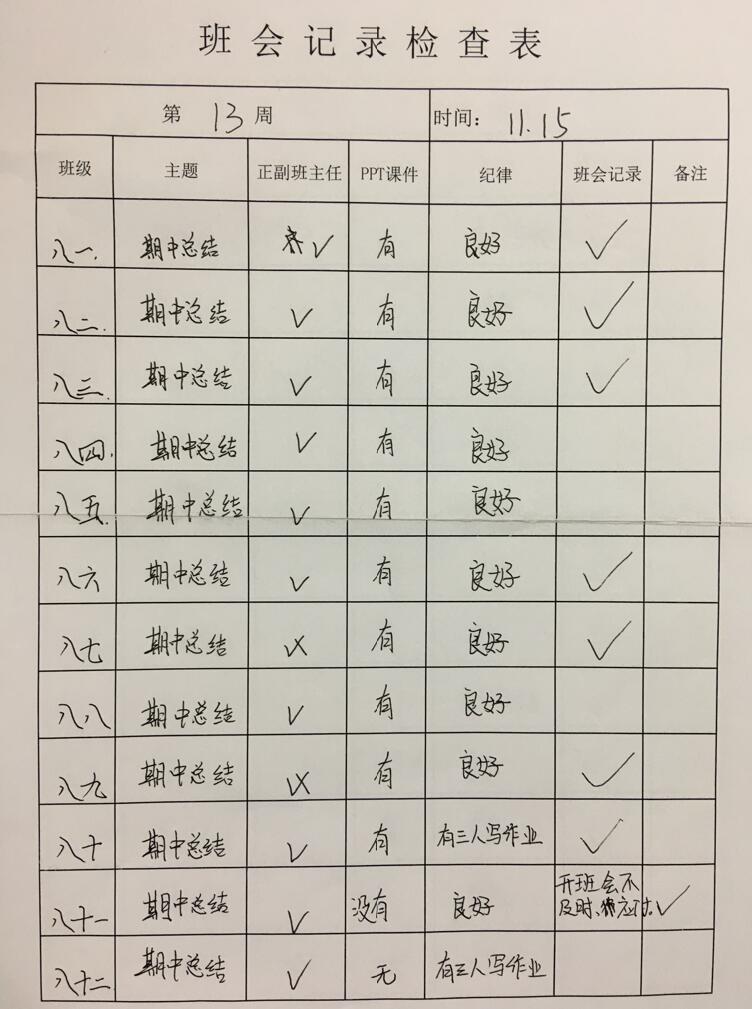 班会记录检查表
第 13 周 时间： 11.15
班级 主题 正副班主任 PPT课件 纪律 班会记录 备注
八一. 期中总结 √ 有 良好 √
八二. 期中总结 √ 有 良好 √
八三. 期中总结 √ 有 良好 √
八四. 期中总结 √ 有 良好
八五. 期中总结 √ 有 良好
八六 期中总结 √ 有 良好 √
八七 期中总结 √× 有 良好 √
八八 期中总结 √ 有 良好
八九 期中总结 √× 有 良好 √
八十 期中总结 √ 有 有三人写作业 √
八十一 期中总结 √ 没有 良好 开班会不
及时、应付。 √
八十二 期中总结 √ 无 有三人写作业